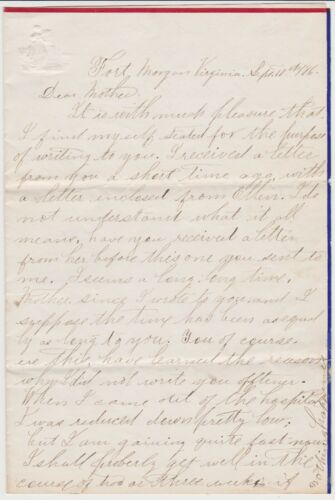 Fort Morgan Virginia. Sept. 11th /86.
Dear Mother.
It is with much pleasure that
I find myself seated for the purpose
of writing to you. I received a letter
from you a short time ago, with
a letter enclosed from Ellen. I do
not understand what it all
means, have you received a letter
from her before this one you sent to
me. I seems a long long time,
Mother since I wrote to you and I
suppose the time has been as equal
ly as long to you. You of course.
ere this, have learned the reason
why I did not write you oftener.
When I come out of the hospital
I was reduced down pretty low;
but I am gaining quite fast now
I shall proberly get well in the
course of two or three weeks if